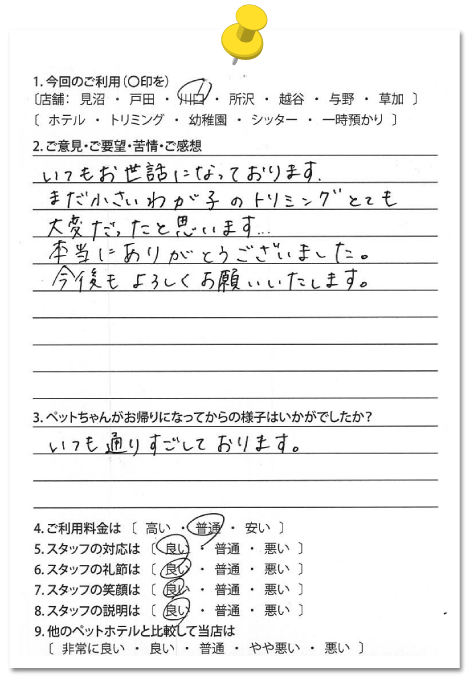 1. 今回のご利用(〇印を)
〔店舗： 見沼 ・ 戸田 ・ 川口 ・ 所沢 ・ 越谷 ・ 与野 ・ 草加 〕
〔 ホテル ・ トリミング ・ 幼稚園 ・ シッター ・ 一時預かり 〕
2. ご意見・ご要望・苦情・ご感想
いつもお世話になっております.
まだ小さいわが子のトリミングとても
大変だったと思います...
本当にありがとうございました。
今後もよろしくお願いいたします。
3. ペットちゃんがお帰りになってからの様子はいかがでしたか？
いつも通りすごしております。
4. ご利用料金は 〔 高い ・ 普通 ・ 安い 〕
5. スタッフの対応は 〔 良い ・ 普通 ・ 悪い 〕
6. スタッフの礼節は 〔 良い ・ 普通 ・ 悪い 〕
7. スタッフの笑顔は 〔 良い ・ 普通 ・ 悪い 〕
8. スタッフの説明は 〔 良い ・ 普通 ・ 悪い 〕
9. 他のペットホテルと比較して当店は
〔 非常に良い ・ 良い ・ 普通 ・ やや悪い ・ 悪い 〕